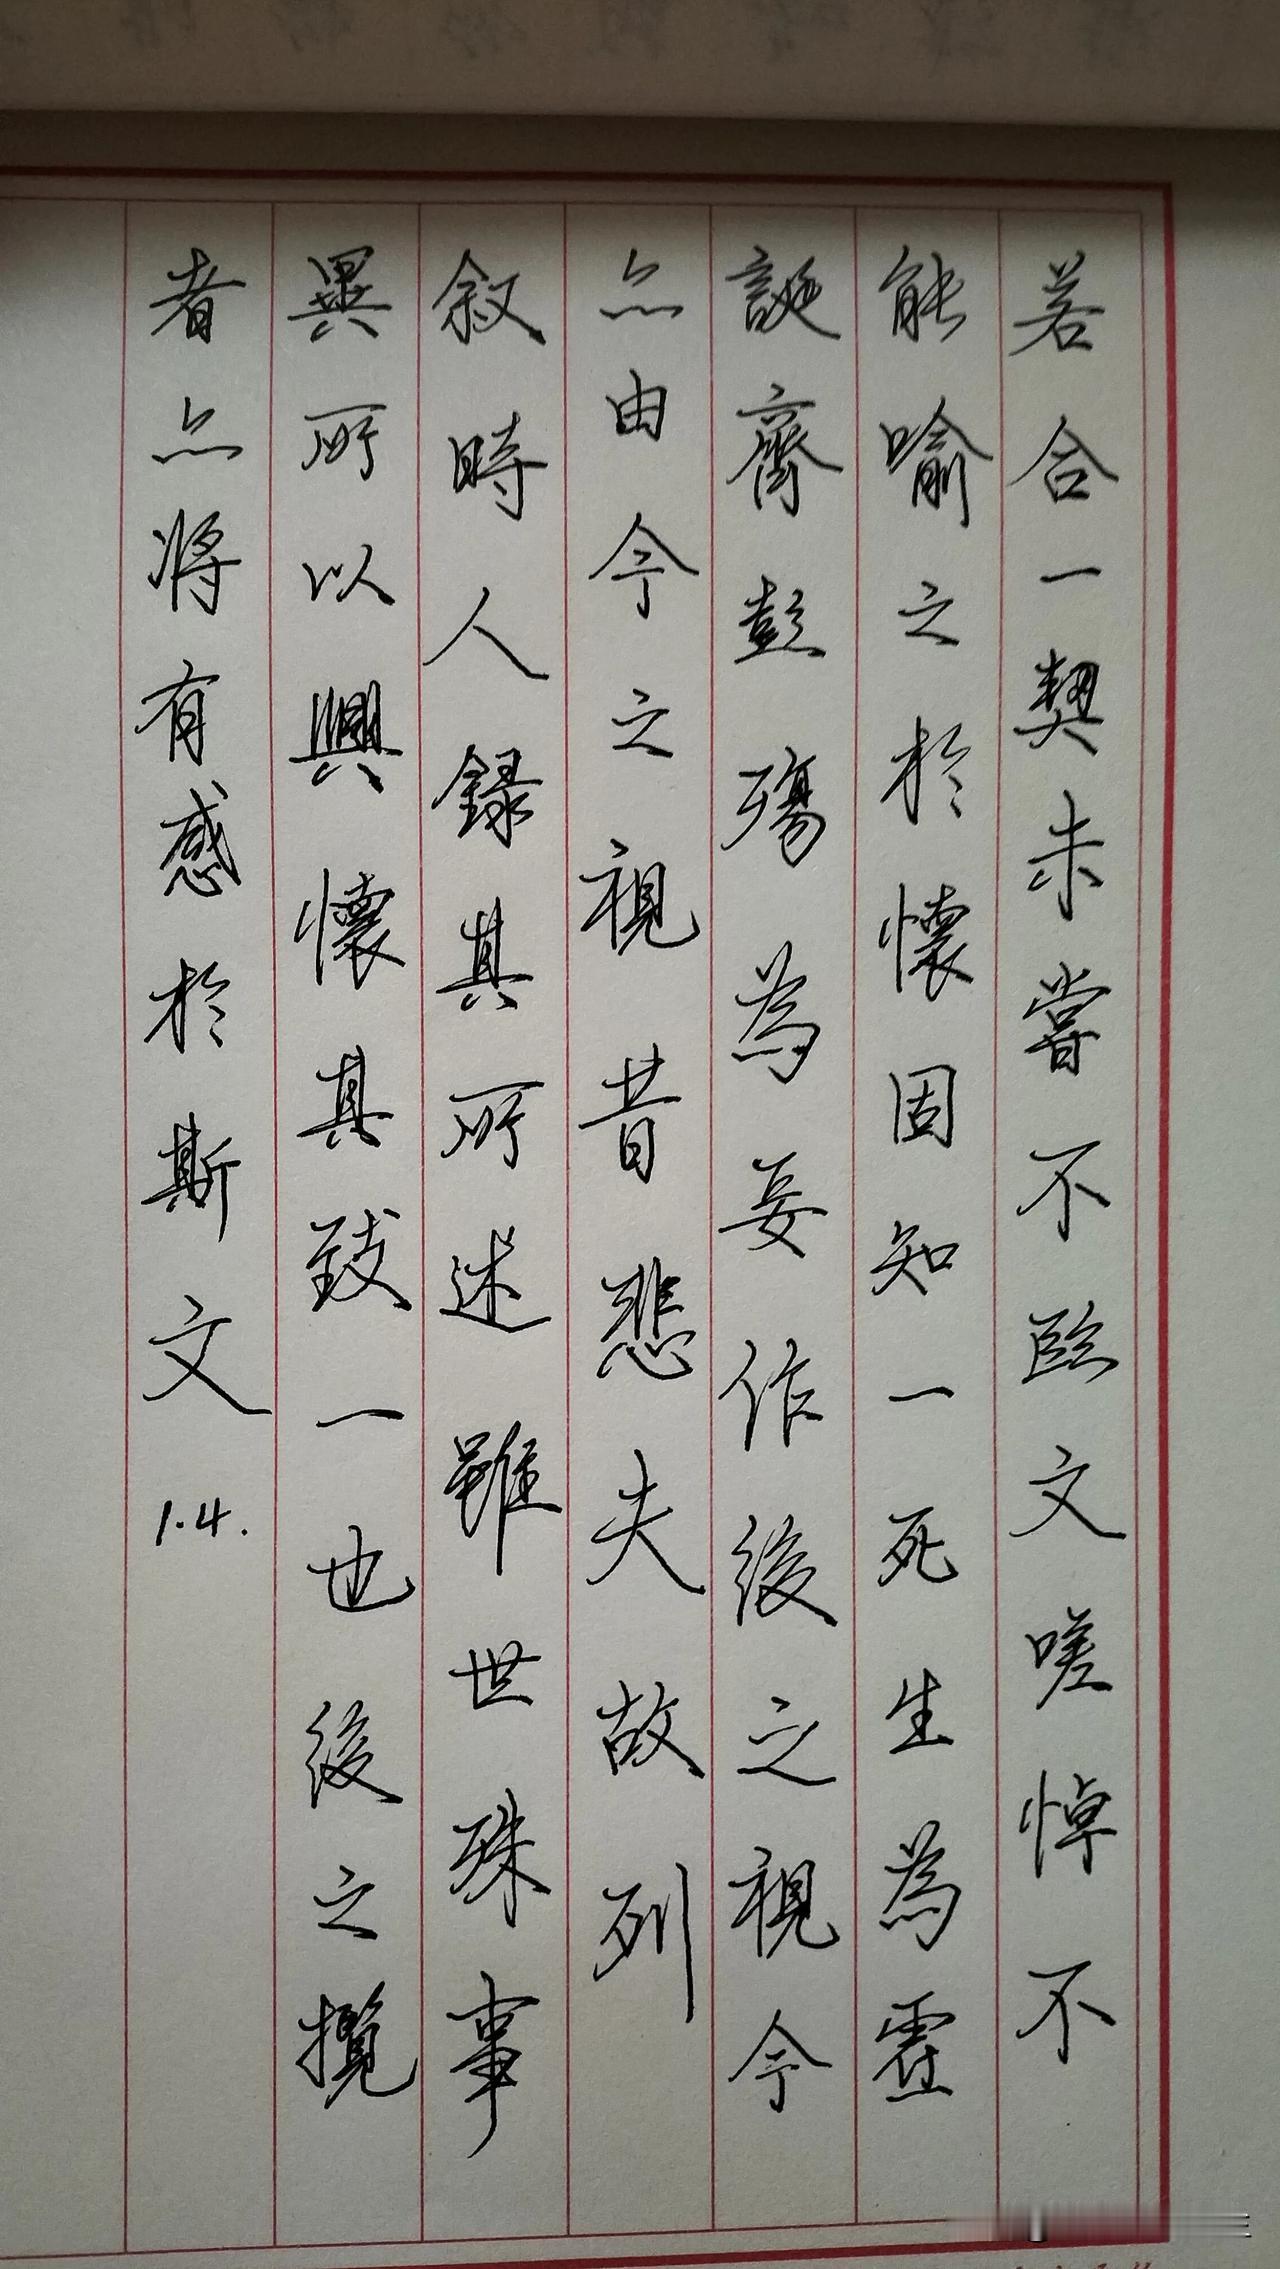 若合一契未嘗不臨文嗟悼不
能喻之於懷固知一死生為虛
誕齊彭殤為妄作後之視今
亦由今之視昔悲夫故列
叙時人録其所述雖世殊事
異所以興懷其致一也後之攬
者亦將有感於斯文 1.4.